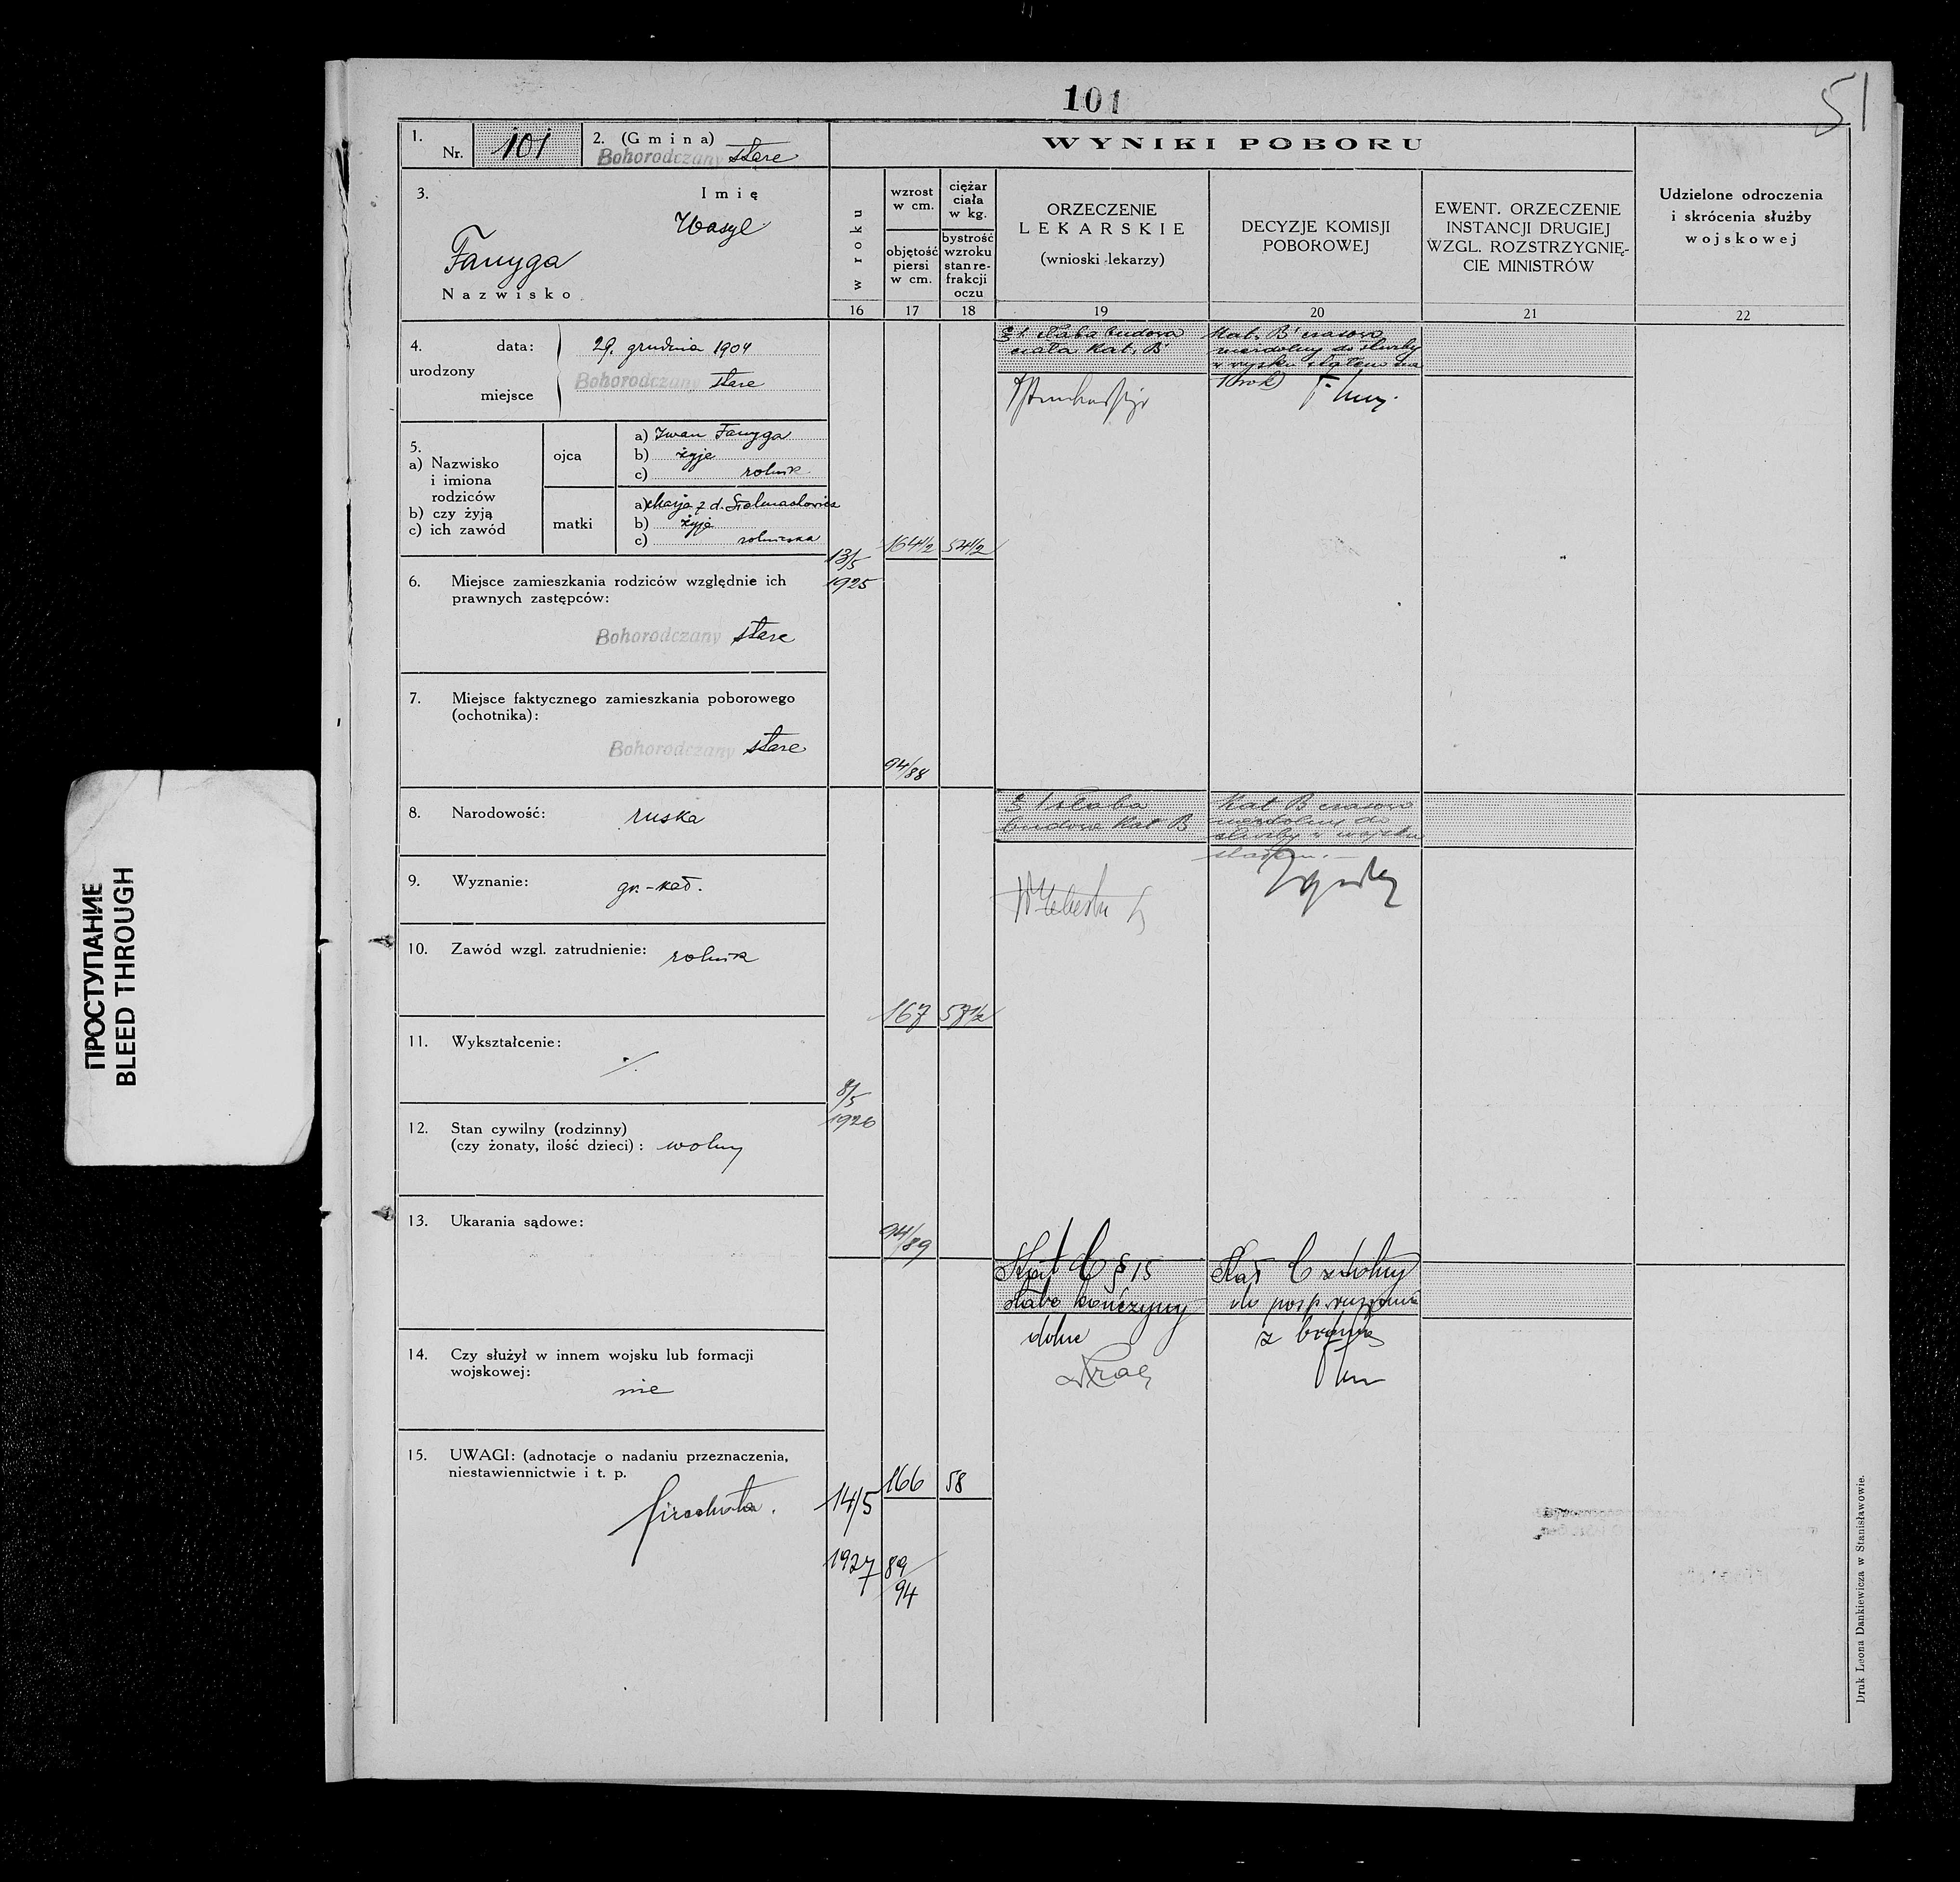 101
51
1. Nr. 101
2. (Gmina) Bohorodczany stare
WYNIKI POBORU
3. Imię
Wasyl
Fanyga
Nazwisko
w roku
wzrost w cm.
objętość piersi w cm.
ciężar ciała w kg.
bystrość wzroku stan re-frakcji oczu
ORZECZENIE
LEKARSKIE
(wnioski lekarzy)
DECYZJE KOMISJI
POBOROWEJ
EWENT. ORZECZENIE
INSTANCJI DRUGIEJ
WZGL. ROZSTRZYGNIĘ-
CIE MINISTRÓW
Udzielone odroczenia
i skrócenia służby
wojskowej
16 17 18 19 20 21 22
4. urodzony
data: 29. grudnia 1904
miejsce Bohorodczany stare
5.
a) Nazwisko
i imiona
rodziców
b) czy żyją
c) ich zawód
ojca
a) Iwan Fanyga
b) żyje
c) rolnik
matki
a) Marja z d.
b) żyje
c) rolniczka
6. Miejsce zamieszkania rodziców względnie ich
prawnych zastępców:
Bohorodczany stare
7. Miejsce faktycznego zamieszkania poborowego
(ochotnika):
Bohorodczany stare
8. Narodowość: ruska
9. Wyznanie: gr.-kat.
10. Zawód wzgl. zatrudnienie: rolnik
11. Wykształcenie:
./.
12. Stan cywilny (rodzinny)
(czy żonaty, ilość dzieci): wolny
13. Ukarania sądowe:
14. Czy służył w innem wojsku lub formacji
wojskowej:
nie
15. UWAGI: (adnotacje o nadaniu przeznaczenia,
niestawiennictwie i t. p.
piechota.
13/5
1925
164 1/2
54 1/2
94/88
słaba budowa
ciała Kat. B
Kat. B czasowo
niezdolny do służby
w wojsku stałem na
1 rok
8/5
1926
167
57 1/2
94/89
słaba
budowa Kat B
Kat B czasowo
niezdolny do
służby w wojsku
stałem.
14/5
1927
166
58
89/94
Kat C § 15
słabe kończyny
dolne
Kat C zdolny
do posp. ruszenia
z bronią
Druk Leona Dankiewicza w Stanisławowie.
ПРОСТУПАНИЕ
BLEED THROUGH